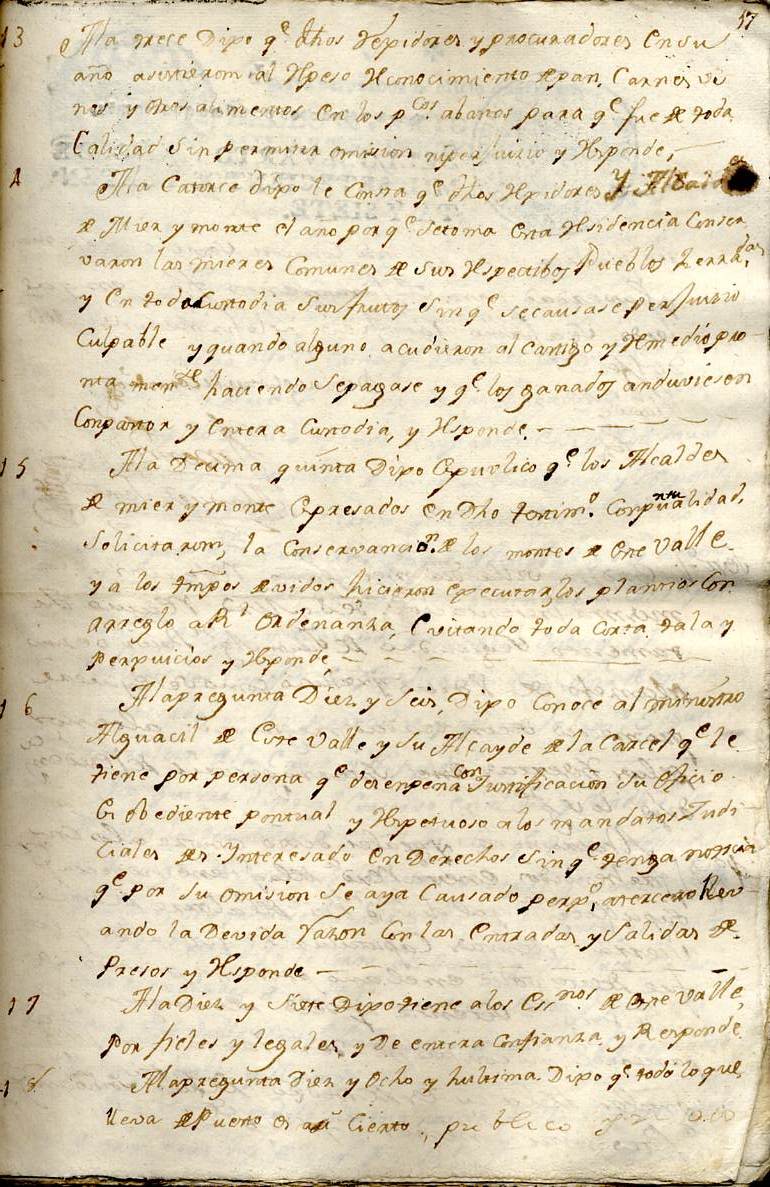 17
13 A la trece Dipo q.e dhos Rexidores y procuradores en su
año asistieron al Rpeso Reconocimiento de pan, Carnes vi
nos y otros alimentos en los p.cos abastos para q.e fue de toda
Calidad sin permitir omision ni perjuicio y Rsponde,
14 A la Catorce dipo le Consta q.e dhos Rxidores y Alcaldes
de Mier y monte el año por q.e se toma esta Rsidencia Conser
varon las mieses Comunes de sus Rspectibos Pueblos Zerradas
y en toda Custodia sus frutos sin q.e se causase perjuicio
Culpable y quando alguno acudieron al Castigo y Rmedio pro
ntamen.te haciendo se pagase y q.e los ganados anduviesen
Con pastor y entera Custodia, y Rsponde.
15 A la Decima quinta Dipo es publico q.e los Alcaldes
de mier y monte Epresados en Dho testim.o Con puntualidad,
Solicitaron, la Conservancion de los montes de este Valle
y a los tmpos devidos hicieron executar los plantios Con
arreglo a R.l Ordenanza, Evitando toda Corta, tala y
Perjuicios y Rsponde,
16 A la pregunta Diez y Seis, Dipo Conoce al ministro
Alguacil de Este Valle y su Alcayde de la Carcel q.e le
tiene por persona q.e desenpeña con Justificacion su Oficio
Es obediente pontual y Rspetuoso a los mandatos Judi
Ciales desYnteresado en Derechos sin q.e tenga noticia
q.e por su omision se aya Causado perj.o a tercero llev
ando la Devida razon Con las Entradas y Salidas de
Presos y Rsponde
17 A la Diez y Siete Dipo tiene a los Ess.nos de este valle,
Por fieles y legales y De entera Confianza y Responde
18 A la pregunta Diez y Ocho y hultima Dipo q.e todo lo que
lleva dePuesto es Cierto, publico y